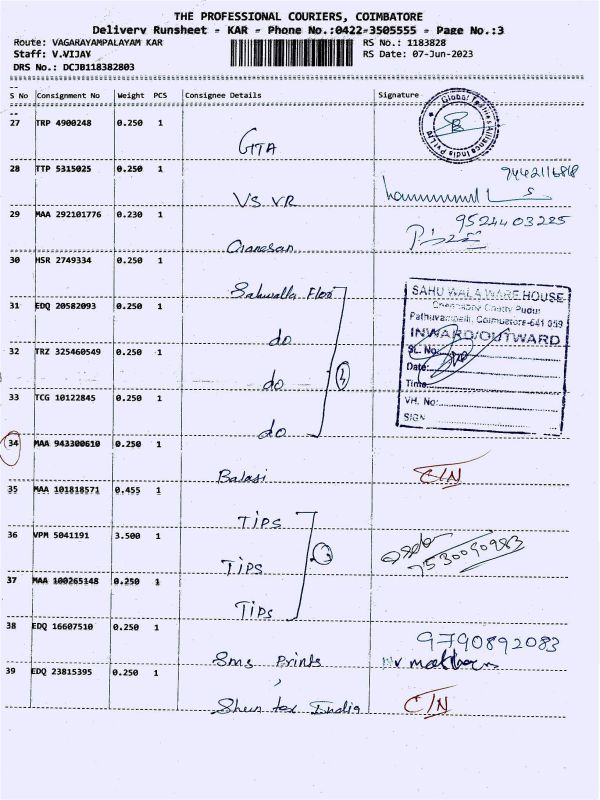 THE PROFESSIONAL COURIERS, COIMBATORE
Delivery Runsheet - KAR - Phone No.:0422-3505555 - Page No.:3
Route: VAGARAYAMPALAYAM KAR
RS No.: 1183828
Staff: V.VIJAY
RS Date: 07-Jun-2023
DRS No.: DCJB118382803
S No Consignment No Weight PCS Consignee Details Signature
Global Textiles Alliance India Pvt Ltd
27 TRP 4900248 0.250 1
GTA
28 TTP 5315025 0.250 1
9442116818
VS VR
29 MAA 292101776 0.230 1
9524403225
Ganesan
30 HSR 2749334 0.250 1
Sahuwalla Flexi
31 EDQ 20582093 0.250 1
do
32 TRZ 325460549 0.250 1
do
33 TCG 10122845 0.250 1
do
4
SAHUWALA WARE HOUSE
Pathuvampalli, Coimbatore-641 059
INWARD/OUTWARD
SL. No:
Date:
Time:
VH. No:
SIGN
34 MAA 943300610 0.250 1
Balasi
C/N
35 MAA 101818571 0.455 1
TIPS
36 VPM 5041191 3.500 1
TIPS
7530090983
37 MAA 100265148 0.250 1
TIPS
3
38 EDQ 16607510 0.250 1
9790892083
Sms Prints
39 EDQ 23815395 0.250 1
Shen tex India
C/N